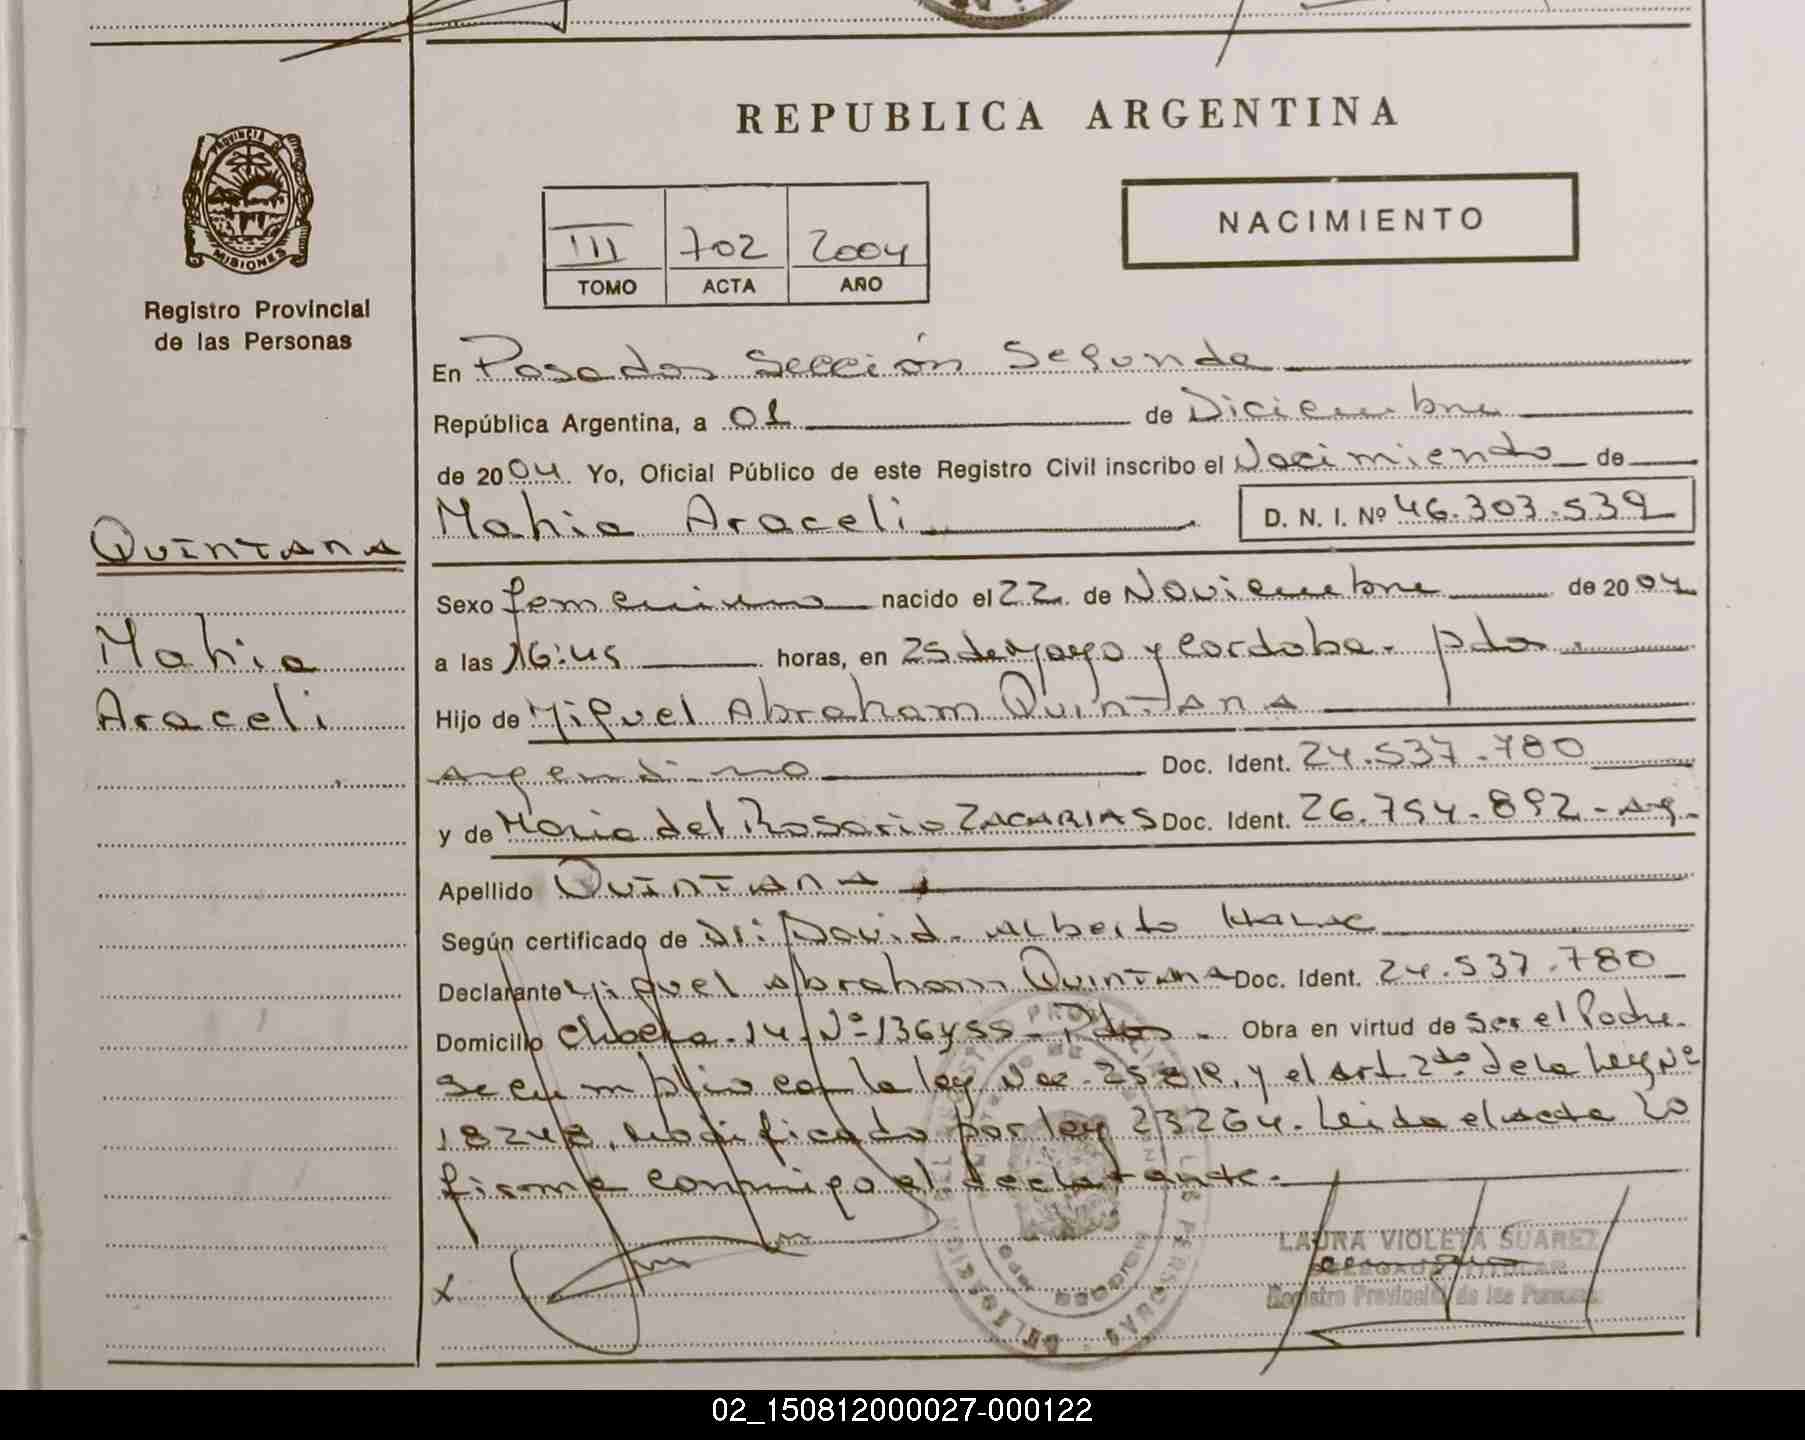 REPUBLICA ARGENTINA
PROVINCIA DE
MISIONES
Registro Provincial
de las Personas
III 702 2004
TOMO ACTA AÑO
NACIMIENTO
En Posadas Sección Segunda
República Argentina, a 01 de Diciembre
de 2004 Yo, Oficial Público de este Registro Civil inscribo el Nacimiento de
Mahia Araceli D. N. I. Nº 46.303.539
QUINTANA
Mahia
Araceli
Sexo femenino nacido el 22 de Noviembre de 2004
a las 16:45 horas, en 25 de Mayo y Cordoba - pdas.
Hijo de Miguel Abraham QUINTANA
argentino Doc. Ident. 24.537.780
y de Maria del Rosario ZACARIAS Doc. Ident. 26.754.892 - arg.
Apellido QUINTANA
Según certificado de Dr: David Alberto
Declarante Miguel Abraham QUINTANA Doc. Ident. 24.537.780
Domicilio Chacra 14 Nº 136455 - Pdas - Obra en virtud de ser el Padre.
Se cumplio con la ley Nº 25.819, y el art. 2do de la Ley Nº
18248, modificado por ley 23264. Leida el acta lo
firma conmigo el declarante.
X
LAURA VIOLETA SUAREZ
DELEGADA TITULAR
Registro Provincial de las Personas
02_150812000027-000122